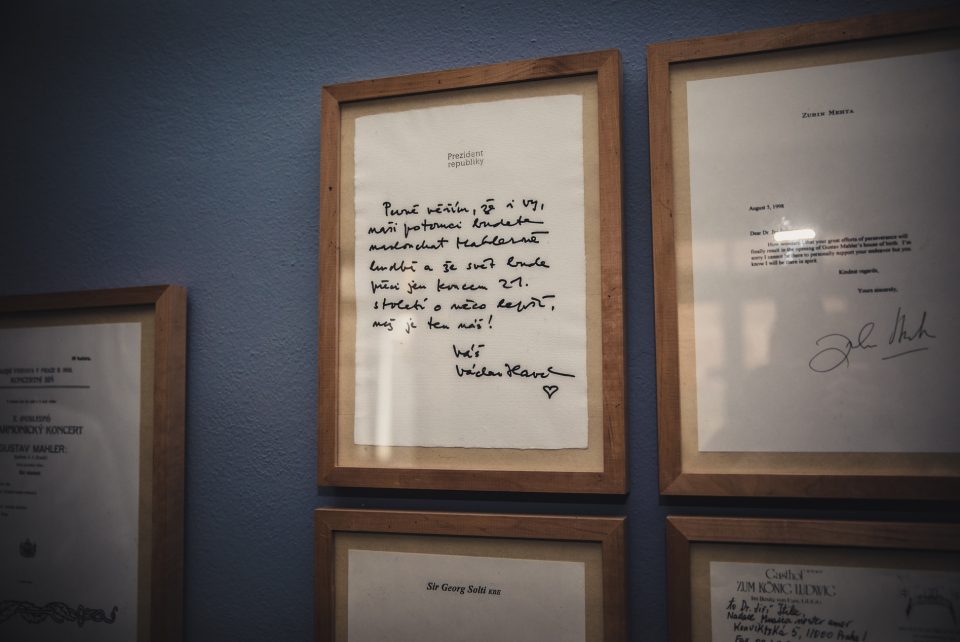 Prezident
republiky
Pevně věřím, že i vy,
naši potomci budete
naslouchat Mahlerově
hudbě a že svět bude
přeci jen koncem 21.
století o něco lepší,
než je ten náš!
Váš
Václav Havel
ZUBIN MEHTA
August 5, 1998
Dear Dr.
that your great efforts of perseverance will
finally result in the opening of Gustav Mahler's house of birth. I'm
sorry I cannot be there to personally support your endeavor but you
know I will be there in spirit
Kindest regards,
Yours sincerely,
KONCERTNÍ SÍŇ
ARMONICKÝ KONCERT
GUSTAV MAHLER:
Sir Georg Solti KBE
Gasthof
ZUM KÖNIG LUDWIG
to Dr. Jiří
Nadace Musica noster amor
Konviktská 5, 11000 Praha 1